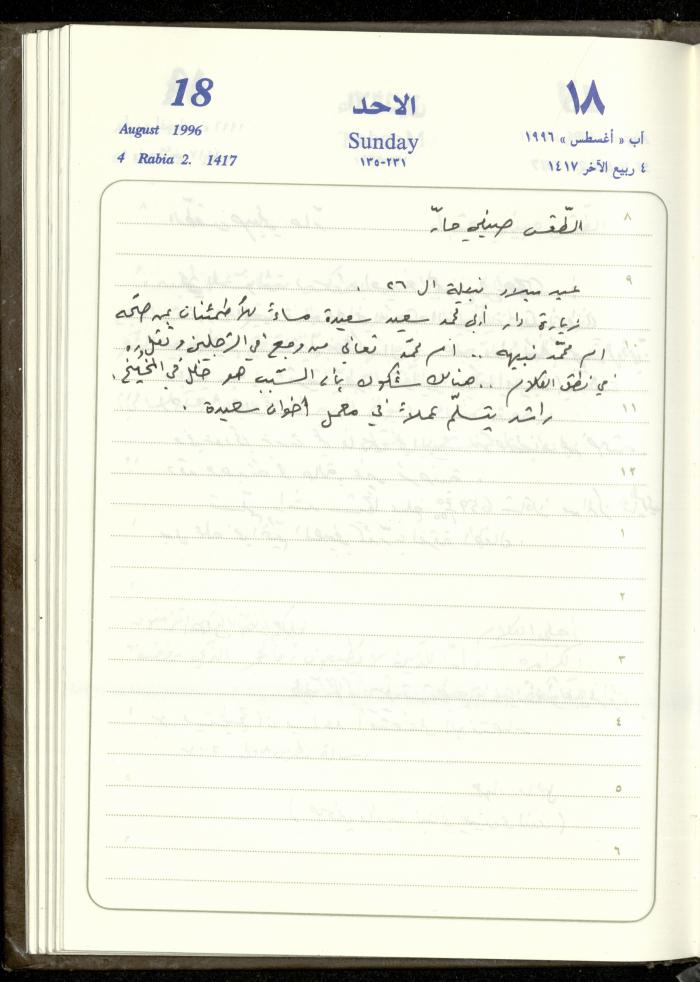 18
August 1996
4 Rabia 2. 1417
الاحد
Sunday
١٣٥-٢٣١
١٨
آب « أغسطس » ١٩٩٦
٤ ربيع الآخر ١٤١٧
٨
الطّقس صيفي حارّ
٩
عيد ميلاد نبيلة ال ٢٦ .
زيارة دار أبي محمد سعيد سعيدة مساءً للأطمئنان عن صحّة
ام محمّد نبيهه .. ام محمّد تعاني من وجع في الرّجلين و ثقل
في نطق الكلام .. هناك شكوك بأن السّبب هو خلل في المخّ
١١
راشد يتسلّم عملاً في معمل أخوان سعيدة .
١٢
١
٢
٣
٤
٥
٦